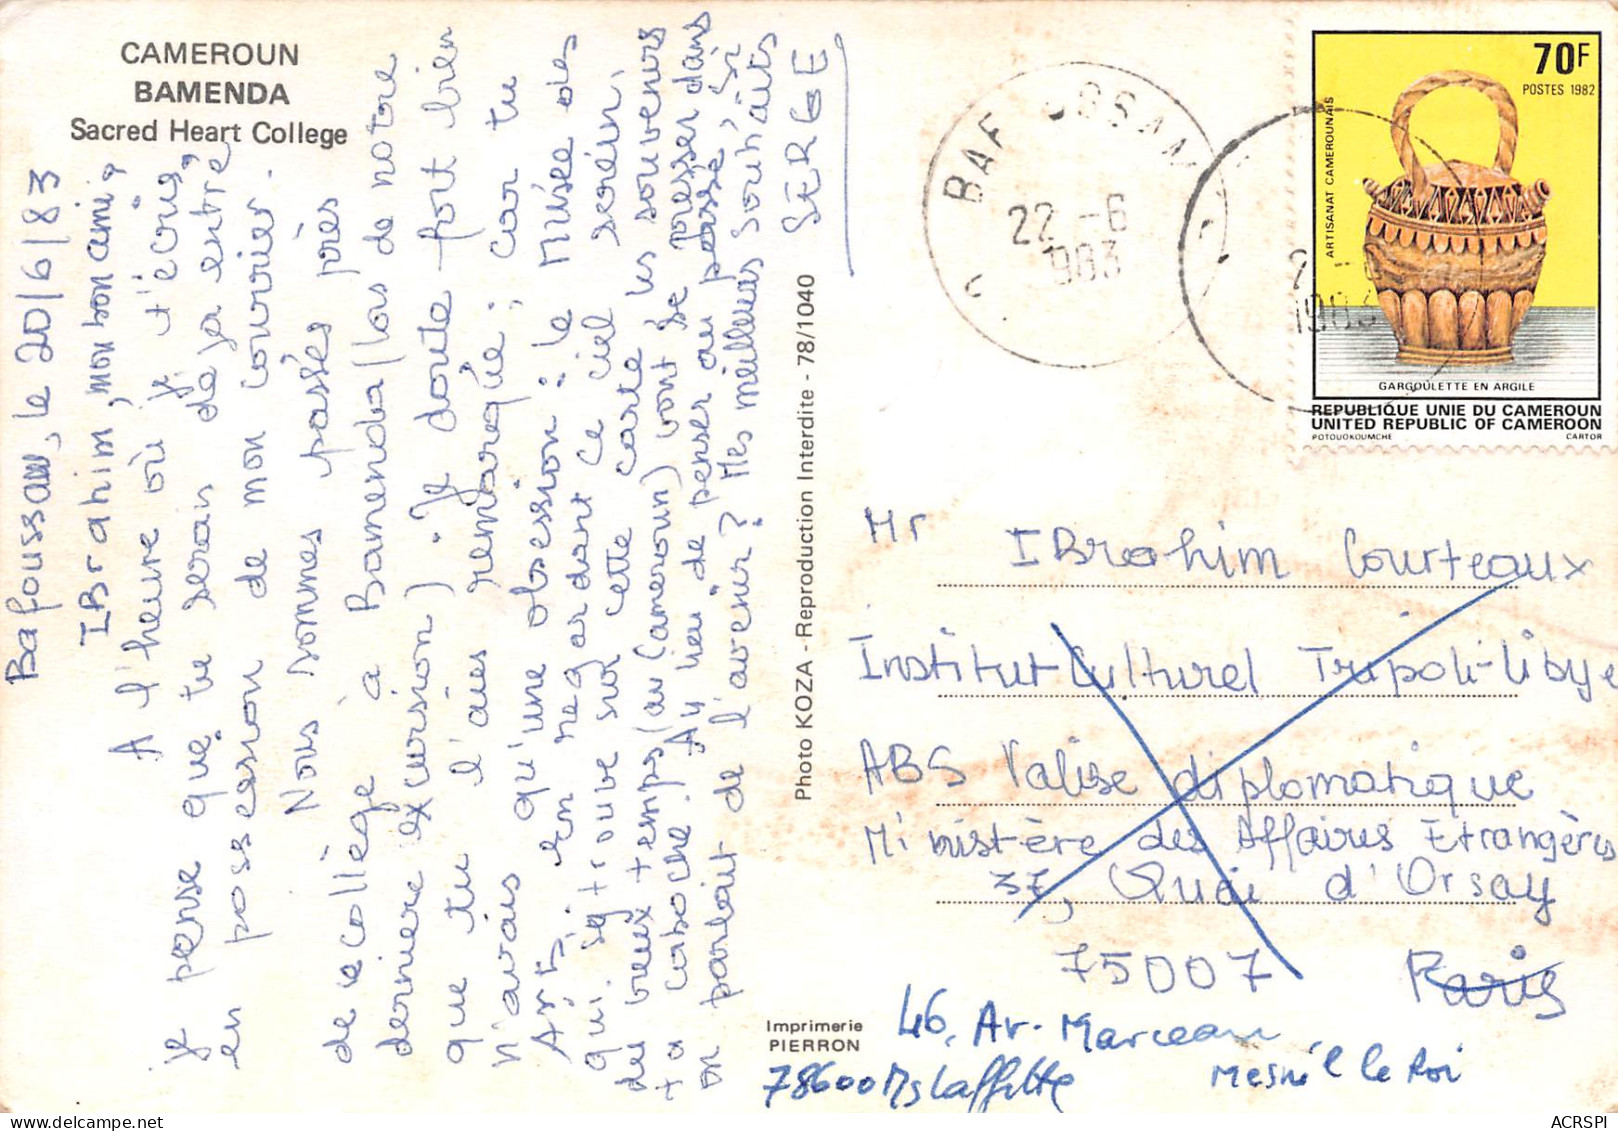 CAMEROUN
BAMENDA
Sacred Heart College
Bafoussam, le 20/6/83
IBrahim, mon bon ami,
A l'heure où je t'écris,
je pense que tu seras déja entré
en possession de mon courrier.
Nous sommes passés près
de ce collège à Bamenda (lors de notre
dernière excursion). Je doute fort bien
que tu l'aies remarqué; car tu
n'avais qu'une obsession: le Musée des
Arts. En regardant ce ciel serein,
qui se trouve sur cette carte les souvenirs
des vieux temps (au Cameroun) vont se presser dans
ta caboche. A y lieu de penser au passé, si
on parlait de l'avenir? Mes meilleurs souhaits
SERGE
Photo KOZA - Reproduction Interdite - 78/1040
Imprimerie
PIERRON
BAFOUSSAM
22 -6
1983
2 -6
1983
70F
POSTES 1982
ARTISANAT CAMEROUNAIS
GARGOULETTE EN ARGILE
REPUBLIQUE UNIE DU CAMEROUN
UNITED REPUBLIC OF CAMEROON
POTOUOKOUMCHE CARTOR
Mr IBrahim Courteaux
Institut Culturel Tripoli-Libye
ABS Valise diplomatique
Ministère des Affaires Etrangères
37, Quai d'Orsay
75007 Paris
46, Av. Marceau
Mesnil le Roi
78600 Ms Laffitte
ACRSPI